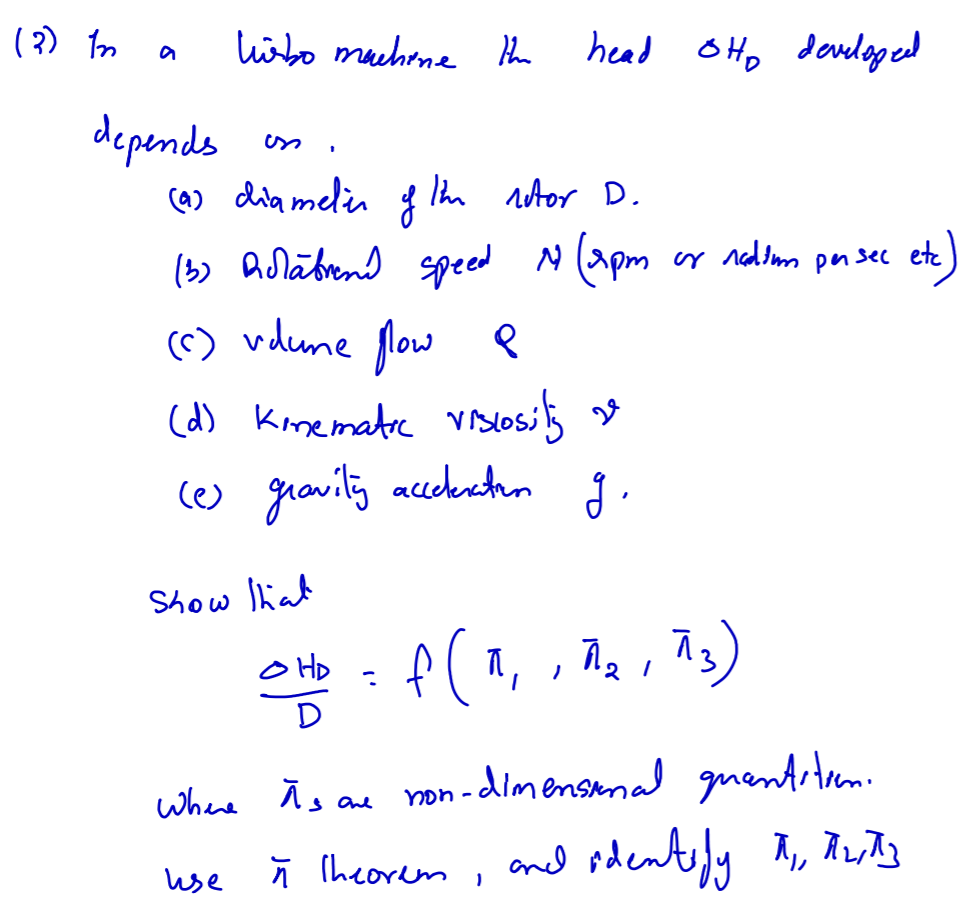 (2) In a turbo machine the head ΔH_D developed
depends on .
(a) diameter of the rotor D.
(b) Rotational speed N (rpm or radian per sec etc)
(c) volume flow Q
(d) Kinematic viscosity ν
(e) gravity acceleration g.
Show that
ΔH_D / D = f ( π₁ , π₂ , π₃ )
where πs are non-dimensional quantities.
use π theorem , and identify π₁, π₂, π₃